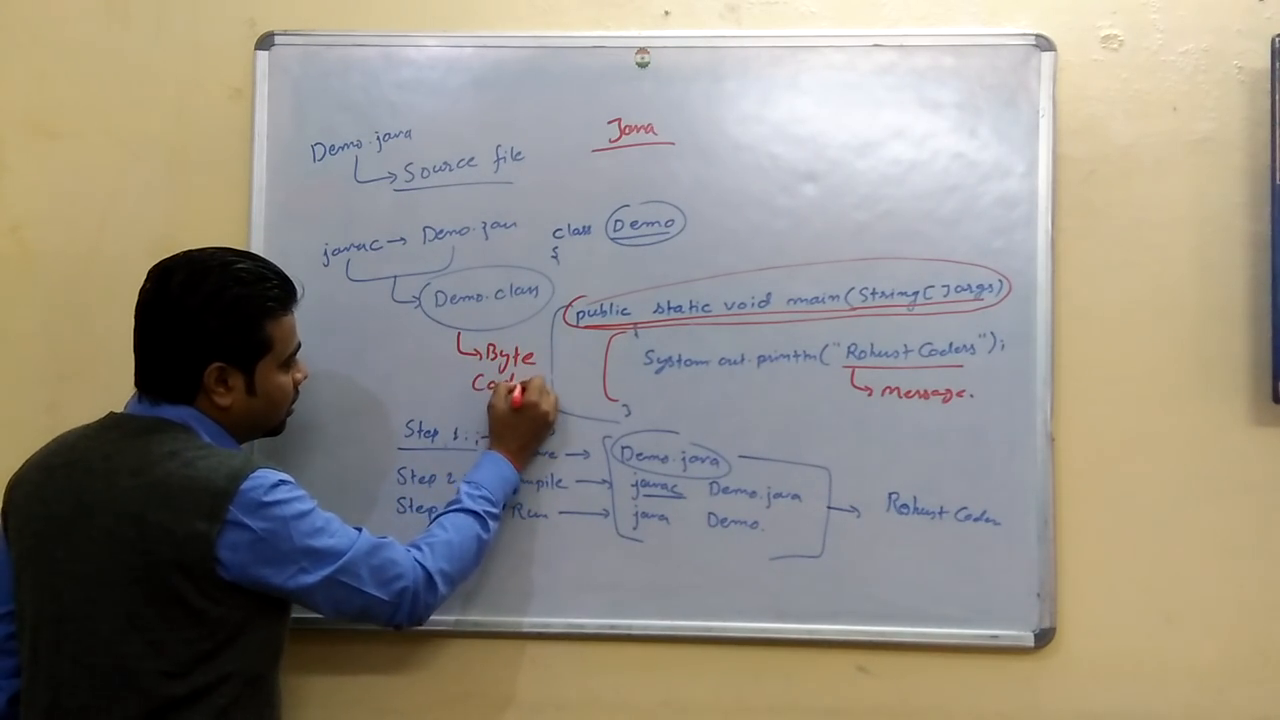 Java
Demo.java
Source file
javac → Demo.java
Demo.class
Byte
class Demo
{
public static void main(String[]args)
{
System.out.println("Robust Coders");
message.
}
Step 1 :-
Demo.java
Step 2
javac Demo.java
Step Run
java Demo.
Robust Coders